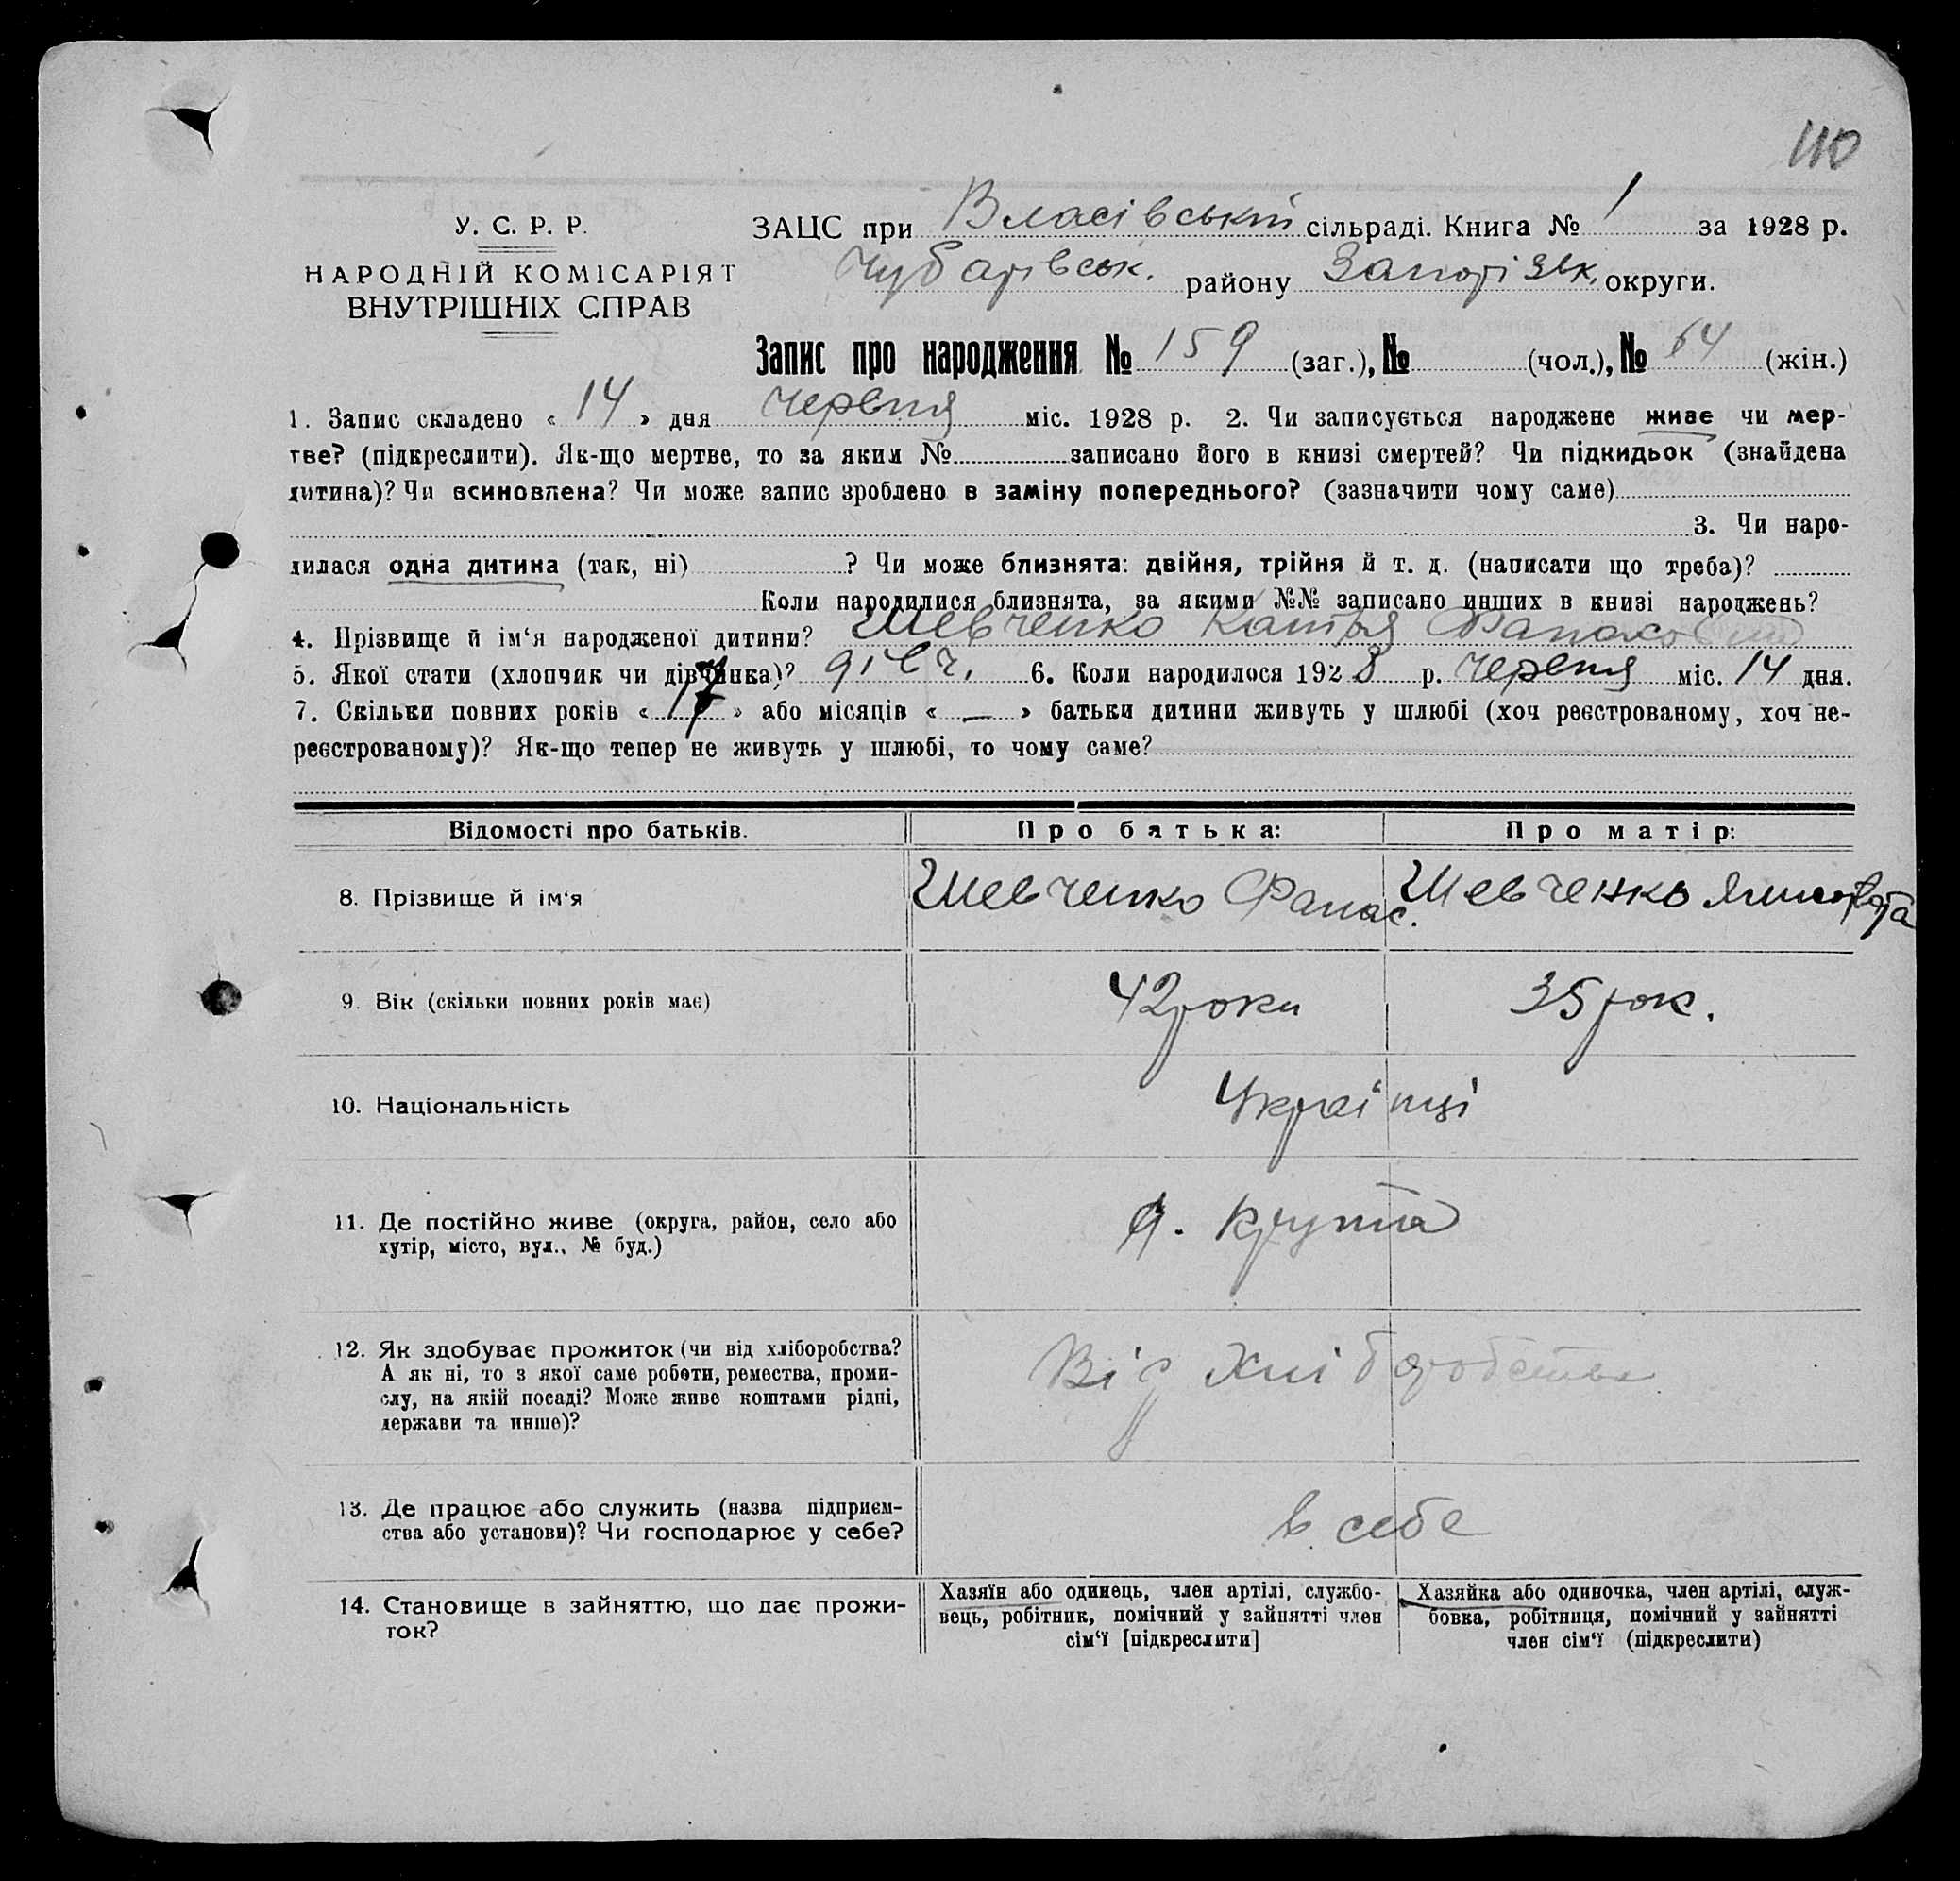 110
У. С. Р. Р.
НАРОДНІЙ КОМІСАРІЯТ
ВНУТРІШНІХ СПРАВ
ЗАЦС при Власівській сільраді. Книга № 1 за 1928 р.
Чубарівськ. району Запорізьк. округи.
Запис про народження № 159 (заг.), № (чол.), № 64 (жін.)
1. Запис складено « 14 » дня червня міс. 1928 р. 2. Чи записується народжене живе чи мер-
тве? (підкреслити). Як-що мертве, то за яким № записано його в книзі смертей? Чи підкидьок (знайдена
дитина)? Чи всиновлена? Чи може запис зроблено в заміну попереднього? (зазначити чому саме)
3. Чи наро-
дилася одна дитина (так, ні) ? Чи може близнята: двійня, трійня й т. д. (написати що треба)?
Коли народилися близнята, за якими №№ записано инших в книзі народжень?
4. Прізвище й ім‘я народженої дитини? Шевченко Катря
5. Якої стати (хлопчик чи дівчинка)? дівч. 6. Коли народилося 1928 р. червня міс. 14 дня.
7. Скільки повних років « 17 » або місяців « — » батьки дитини живуть у шлюбі (хоч реєстрованому, хоч не-
реєстрованому)? Як-що тепер не живуть у шлюбі, то чому саме?
Відомості про батьків. Про батька: Про матір:
8. Прізвище й ім‘я Шевченко Фанас. Шевченко
9. Вік (скільки повних років має) 42 роки 35 рок.
10. Національність Українці
11. Де постійно живе (округа, район, село або
хутір, місто, вул., № буд.) Крута
12. Як здобуває прожиток (чи від хліборобства?
А як ні, то з якої саме роботи, ремества, проми-
слу, на якій посаді? Може живе коштами рідні,
держави та инше)? Від хліборобства
13. Де працює або служить (назва підприєм-
ства або установи)? Чи господарює у себе? в себе
14. Становище в зайняттю, що дає прожи-
ток?
Хазяїн або одинець, член артілі, службо-
вець, робітник, помічний у зайнятті член
сім‘ї [підкреслити]
Хазяйка або одиночка, член артілі, служ-
бовка, робітниця, помічний у зайнятті
член сім‘ї (підкреслити)